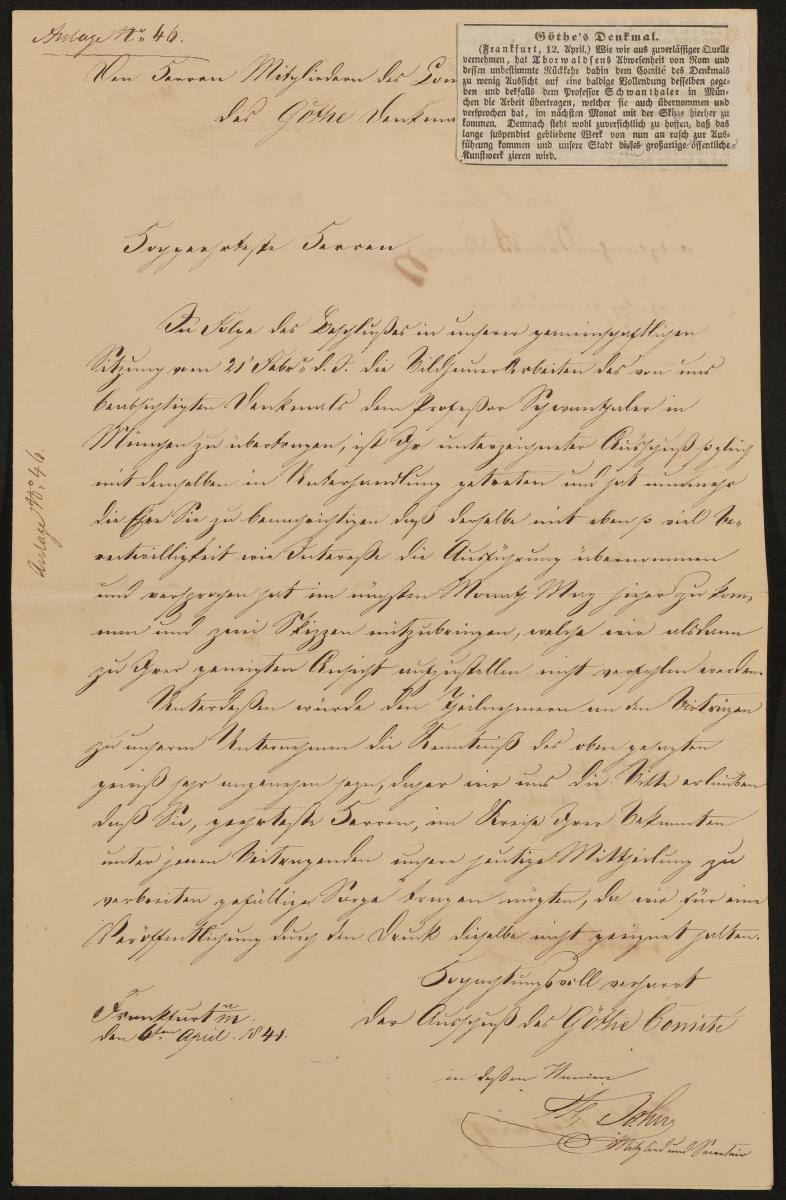 Anlage No. 46.
Den Herren Mitgliedern des Com
des Göthe Denkma
Göthe's Denkmal.
(Frankfurt, 12. April.) Wie wir aus zuverlässiger Quelle
vernehmen, hat Thorwaldsens Abwesenheit von Rom und
dessen unbestimmte Rückkehr dahin dem Comité des Denkmals
zu wenig Aussicht auf eine baldige Vollendung desselben gege-
ben und deßfalls dem Professor Schwanthaler in Mün-
chen die Arbeit übertragen, welcher sie auch übernommen und
versprochen hat, im nächsten Monat mit der Skizze hierher zu
kommen. Demnach steht wohl zuversichtlich zu hoffen, daß das
lange suspendirt gebliebene Werk von nun an rasch zur Aus-
führung kommen und unsere Stadt dieses großartige öffentliche
Kunstwerk zieren wird.
Hochgeehrteste Herren
In Folge des Beschlußes in unserer gemeinschaftlichen
Sitzung vom 21 Febr. d. J. die Bildhauer Arbeiten des von uns
beabsichtigten Denkmals dem Profeßor Schwanthaler in
München zu übertragen, ist Ihr unterzeichneter Ausschuß sogleich
mit demselben in Unterhandlung getreten und hat nunmehr
die Ehre Sie zu benachrichtigen daß derselbe mit eben so viel Be-
reitwilligkeit wie Intereße die Ausführung übernommen
und versprochen hat im nächsten Monath May hieher zu kom-
men und zwei Skizzen mitzubringen, welche wir alsdann
zu Ihrer geneigten Ansicht aufzustellen nicht verfehlen werden.
Unterdeßen würde den Theilnehmern an den Beiträgen
zu unserm Unternehmen die Kenntniß des oben gesagten
gewiß sehr angenehm seyn, daher wir uns die Bitte erlauben
daß Sie, geehrteste Herren, im Kreise Ihrer Bekannten
unter jenen Beitragenden unsere heutige Mittheilung zu
verbreiten gefällige Sorge tragen mögten, da wir für eine
Veröffentlichung durch den Druck dieselbe nicht geeignet halten.
Hochachtungsvoll verharrt
Frankfurt a/m.
den 6ten April. 1841.
der Ausschuß des Göthe Comité
in deßen Namen
Mitglied und Secretair
Anlage No. 46.